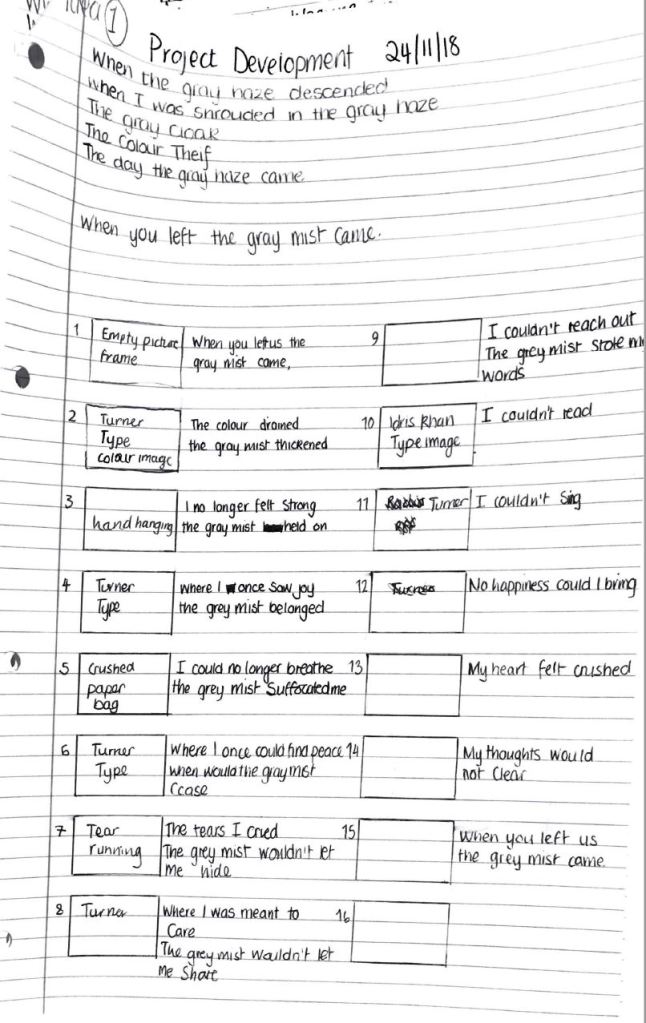 1
Project Development 24/11/18
When the gray haze descended
When I was shrouded in the gray haze
The gray cloak
The Colour Theif
The day the gray haze came
When you left the gray mist came.
1
Empty picture
frame
When you left us the
gray mist came,
2
Turner
Type
colour image
The colour drained
the gray mist thickened
3
hand hanging
I no longer felt strong
the gray mist held on
4
Turner
Type
Where I once saw joy
the grey mist belonged
5
Crushed
paper
bag
I could no longer breathe
the grey mist suffocated me
6
Turner
Type
Where I once could find peace
when would the gray mist
cease
7
Tear
running
The tears I cried
The grey mist wouldn't let
me hide
8
Turner
Where I was meant to
Care
The grey mist wouldn't let
me share
9
I couldn't reach out
The grey mist stole my
words
10
Idris Khan
Type image
I couldn't read
11
Turner
I couldn't sing
12
No happiness could I bring
13
My heart felt crushed
14
My thoughts would
not clear
15
When you left us
the grey mist came
16